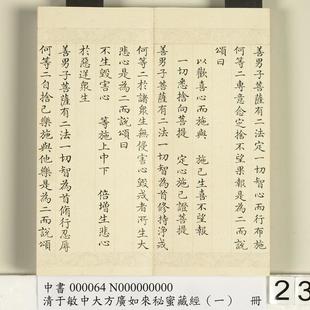 善男子菩薩有二法定一切智心而行布施
何等二專意念定捨不望果報是為二而說
頌曰
以歡喜心而施與　施已生喜不望報
一切悉捨向菩提　定心施已證菩提
善男子菩薩有二法一切智為首修持淨戒
何等二於諸眾生無侵害心毀戒者所生大
悲心是為二而說頌曰
不生毀害心　等施上中下　倍增生悲心
於惡逆眾生
善男子菩薩有二法一切智為首俻行忍辱
何等二自捨己樂施與他樂是為二而說頌
中書 000064 N000000000
清于敏中大方廣如來秘蜜藏經（一）　冊
23